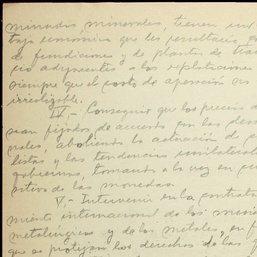 minados minerales tienen una
taja económica que les
de fundiciones y de plantas de
adyacentes a los explotaciones
siempre que el costo de operación no
irrestizable.
IV.- Conseguir que los precios
sean fijados de acuerdo con las
rales, aboliendo la actuación de
listas y las tendencias unilateral
gobiernos, tomando a la vez en
sitivo de las monedas.
V.- Intervenir en la contrata
miento internacional de los
metalúrgicos y de los metales, en
que se protejan los derechos de las